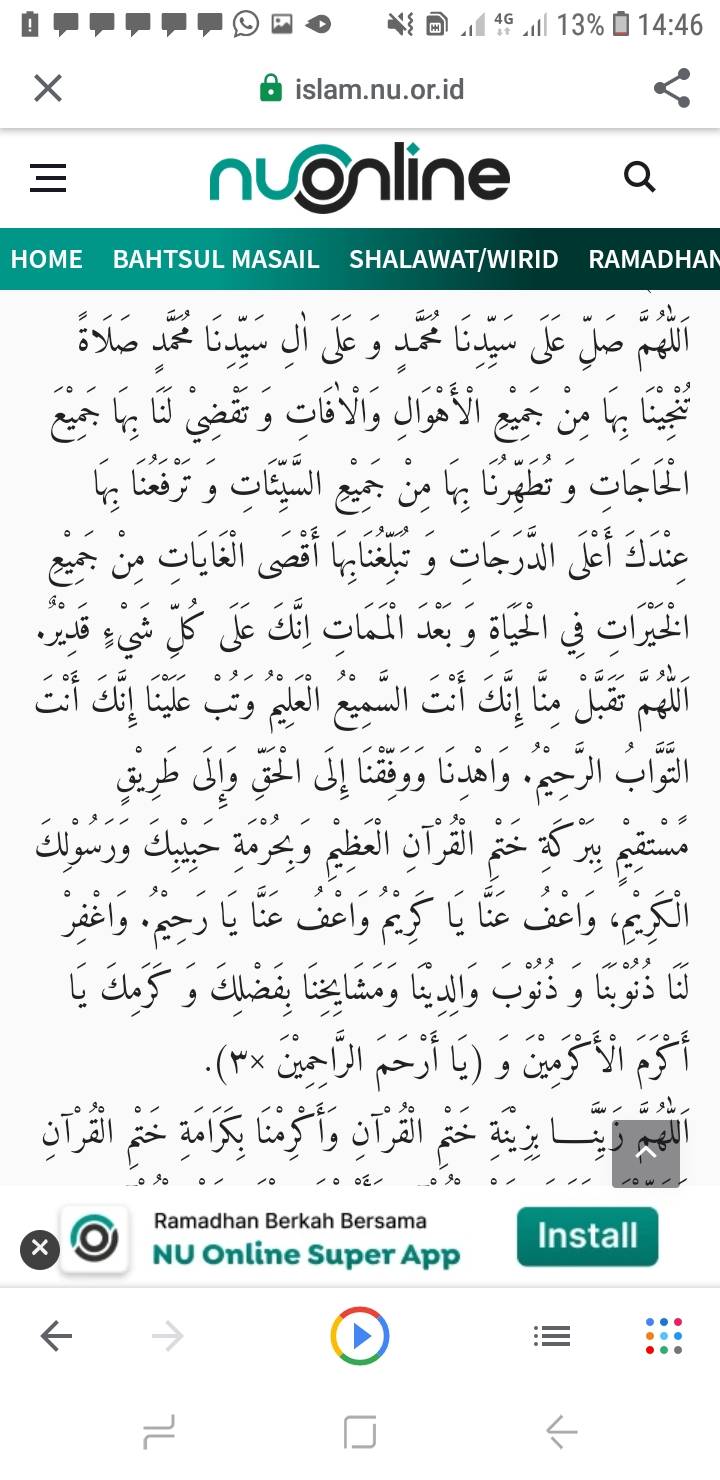 13% 14:46
4G
islam.nu.or.id
nuonline
HOME BAHTSUL MASAIL SHALAWAT/WIRID RAMADHAN
اَللّٰهُمَّ صَلِّ عَلَى سَيِّدِنَا مُحَمَّدٍ وَ عَلَى اٰلِ سَيِّدِنَا مُحَمَّدٍ صَلَاةً
تُنْجِيْنَا بِهَا مِنْ جَمِيْعِ الْأَهْوَالِ وَالْاٰفَاتِ وَ تَقْضِيْ لَنَا بِهَا جَمِيْعَ
الْحَاجَاتِ وَ تُطَهِّرُنَا بِهَا مِنْ جَمِيْعِ السَّيِّئَاتِ وَ تَرْفَعُنَا بِهَا
عِنْدَكَ أَعْلَى الدَّرَجَاتِ وَ تُبَلِّغُنَابِهَا أَقْصَى الْغَايَاتِ مِنْ جَمِيْعِ
الْخَيْرَاتِ فِي الْحَيَاةِ وَ بَعْدَ الْمَمَاتِ اِنَّكَ عَلَى كُلِّ شَيْءٍ قَدِيْرٌ.
اَللّٰهُمَّ تَقَبَّلْ مِنَّا إِنَّكَ أَنْتَ السَّمِيْعُ الْعَلِيْمُ وَتُبْ عَلَيْنَا إِنَّكَ أَنْتَ
التَّوَّابُ الرَّحِيْمُ. وَاهْدِنَا وَوَفِّقْنَا إِلَى الْحَقِّ وَإِلَى طَرِيْقٍ
مُسْتَقِيْمٍ بِبَرْكَةِ خَتْمِ الْقُرْآنِ الْعَظِيْمِ وَبِحُرْمَةِ حَبِيْبِكَ وَرَسُوْلِكَ
الْكَرِيْمِ، وَاعْفُ عَنَّا يَا كَرِيْمُ وَاعْفُ عَنَّا يَا رَحِيْمُ. وَاغْفِرْ
لَنَا ذُنُوْبَنَا وَ ذُنُوْبَ وَالِدِيْنَا وَمَشَايِخِنَا بِفَضْلِكَ وَ كَرَمِكَ يَا
أَكْرَمَ الْأَكْرَمِيْنَ وَ (يَا أَرْحَمَ الرَّاحِمِيْنَ ×٣).
اَللّٰهُمَّ زَيِّنَّـــا بِزِيْنَةِ خَتْمِ الْقُرْآنِ وَأَكْرِمْنَا بِكَرَامَةِ خَتْمِ الْقُرْآنِ
Ramadhan Berkah Bersama
NU Online Super App
Install